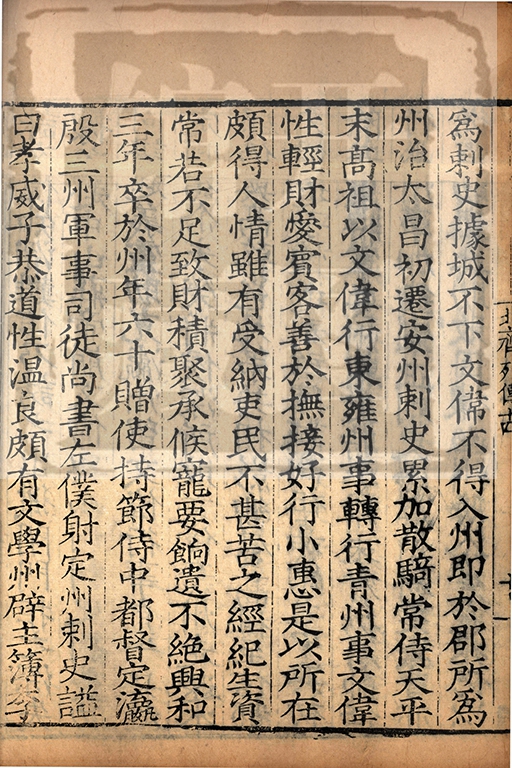 爲刺史據城不下文偉不得入州即於郡所爲
州治太昌初遷安州刺史累加散騎常侍天平
末高祖以文偉行東雍州事轉行青州事文偉
性輕財愛賓客善於撫接好行小惠是以所在
頗得人情雖有受納吏民不甚苦之經紀生資
常若不足致財積聚承候寵要餉遺不絕興和
三年卒於州年六十贈使持節侍中都督定瀛
殷三州軍事司徒尚書左僕射定州刺史謚
曰孝威子恭道性温良頗有文學州辟主簿李
北齊列傳十四